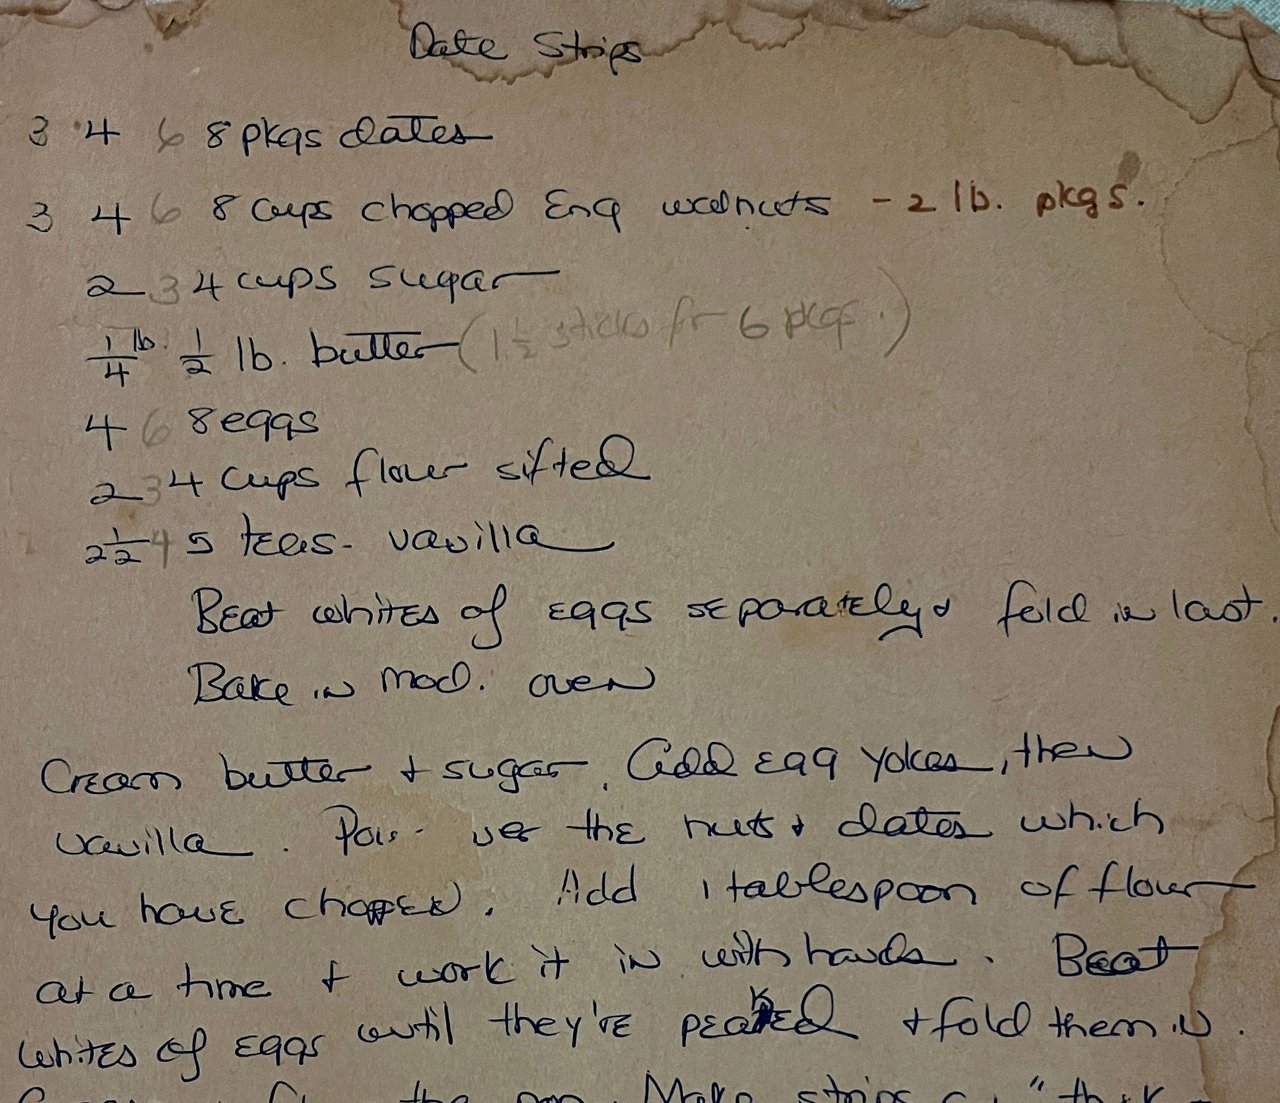 Date Strips
3 4 6 8 pkgs dates
3 4 6 8 cups chopped Eng walnuts - 2 lb. pkgs.
2 3 4 cups sugar
1/4 lb. 1/2 lb. butter (1 1/2 sticks for 6 pkgs.)
4 6 8 eggs
2 3 4 cups flour sifted
2 1/2 4 5 teas. vanilla
Beat whites of eggs separately & fold in last.
Bake in mod. oven
Cream butter & sugar. Add egg yokes, then
vanilla. the nuts & dates which
you have chopped. Add 1 tablespoon of flour
at a time & work it in with hands. Beat
whites of eggs until they're peaked & fold them in.
the pan. Make strips